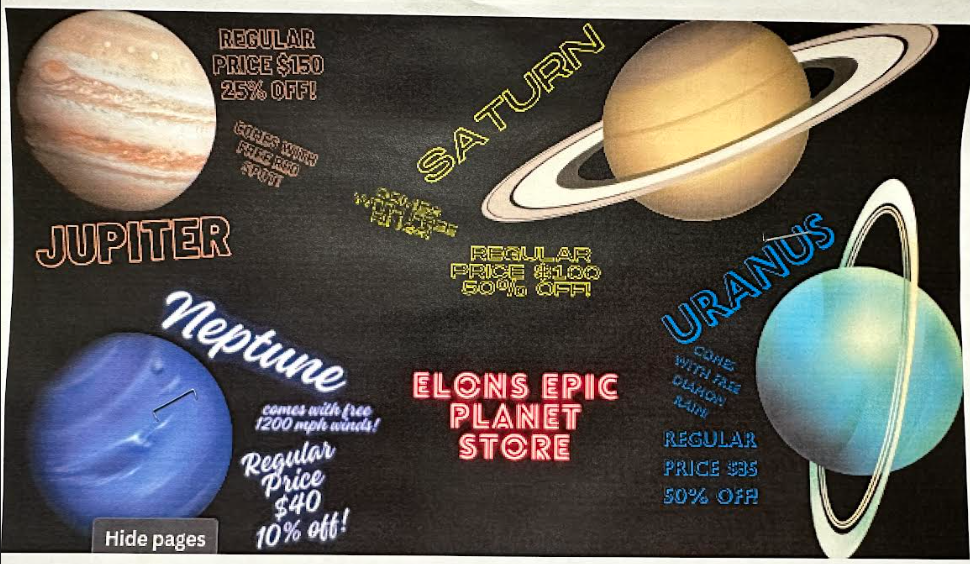 REGULAR
PRICE $150
25% OFF!
COMES WITH
FREE RED
SPOT!
JUPITER
SATURN
COMES
WITH FREE
REGULAR
PRICE $100
50% OFF!
URANUS
COMES
WITH FREE
DIAMON
RAIN!
REGULAR
PRICE $35
50% OFF!
Neptune
comes with free
1200 mph winds!
Regular
Price
$40
10% off!
ELONS EPIC
PLANET
STORE
Hide pages